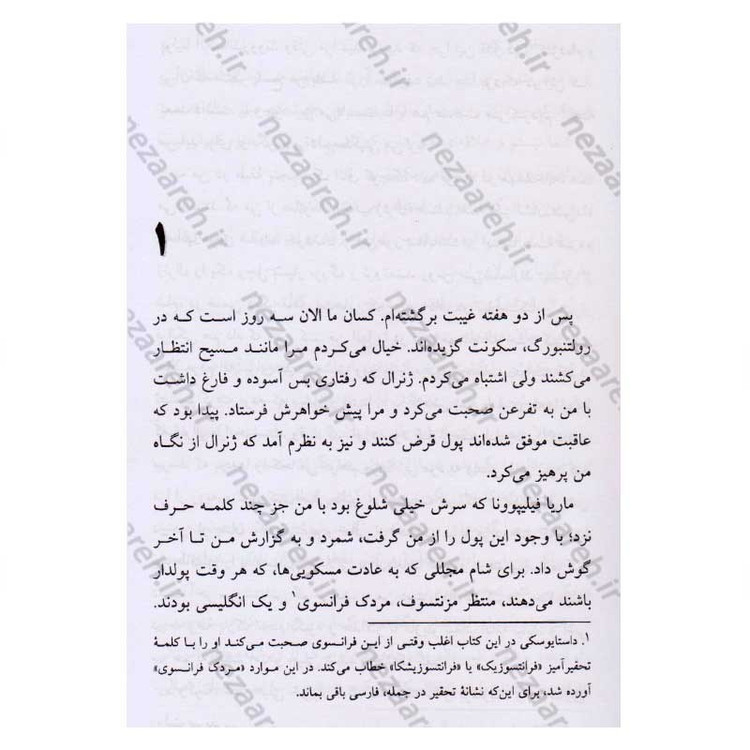 ۱
پس از دو هفته غیبت برگشته‌ام. کسان ما الان سه روز است که در
رولتنبورگ، سکونت گزیده‌اند. خیال می‌کردم مرا مانند مسیح انتظار
می‌کشند ولی اشتباه می‌کردم. ژنرال که رفتاری بس آسوده و فارغ داشت
با من به تفرعن صحبت می‌کرد و مرا پیش خواهرش فرستاد. پیدا بود که
عاقبت موفق شده‌اند پول قرض کنند و نیز به نظرم آمد که ژنرال از نگاه
من پرهیز می‌کرد.
ماریا فیلیپوونا که سرش خیلی شلوغ بود با من جز چند کلمه حرف
نزد؛ با وجود این پول را از من گرفت، شمرد و به گزارش من تا آخر
گوش داد. برای شام مجللی که به عادت مسکویی‌ها، که هر وقت پولدار
باشند می‌دهند، منتظر مزنتسوف، مردک فرانسوی۱ و یک انگلیسی بودند.
۱. داستایوسکی در این کتاب اغلب وقتی از این فرانسوی صحبت می‌کند او را با کلمهٔ
تحقیرآمیز «فرانتسوزیک» یا «فرانتسوزیشکا» خطاب می‌کند. در این موارد «مردک فرانسوی»
آورده شد، برای این‌که نشانهٔ تحقیر در جمله، فارسی باقی بماند.
nezaareh.ir